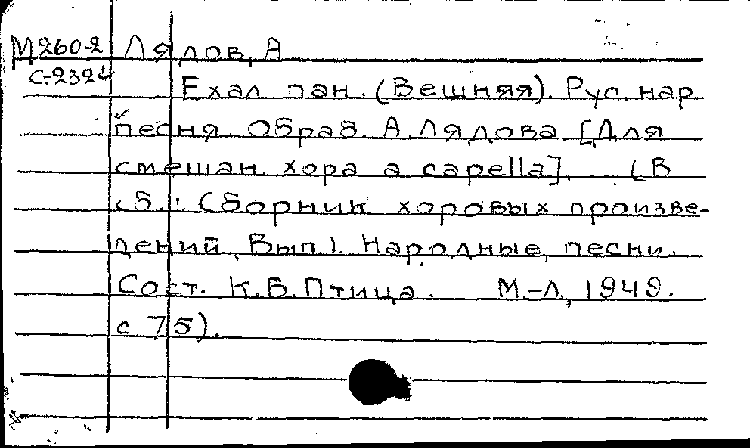 М260-2 Лядов, А
С-2324
Ехал пан. (Вешняя). Рус. нар.
песня. Обраб. А. Лядова [Для
смешан. хора a capella]. (В
сб.: Сборник хоровых произве-
дений. Вып. 1. Народные песни.
Сост. К.Б. Птица. М.-Л., 1949.
с 75).